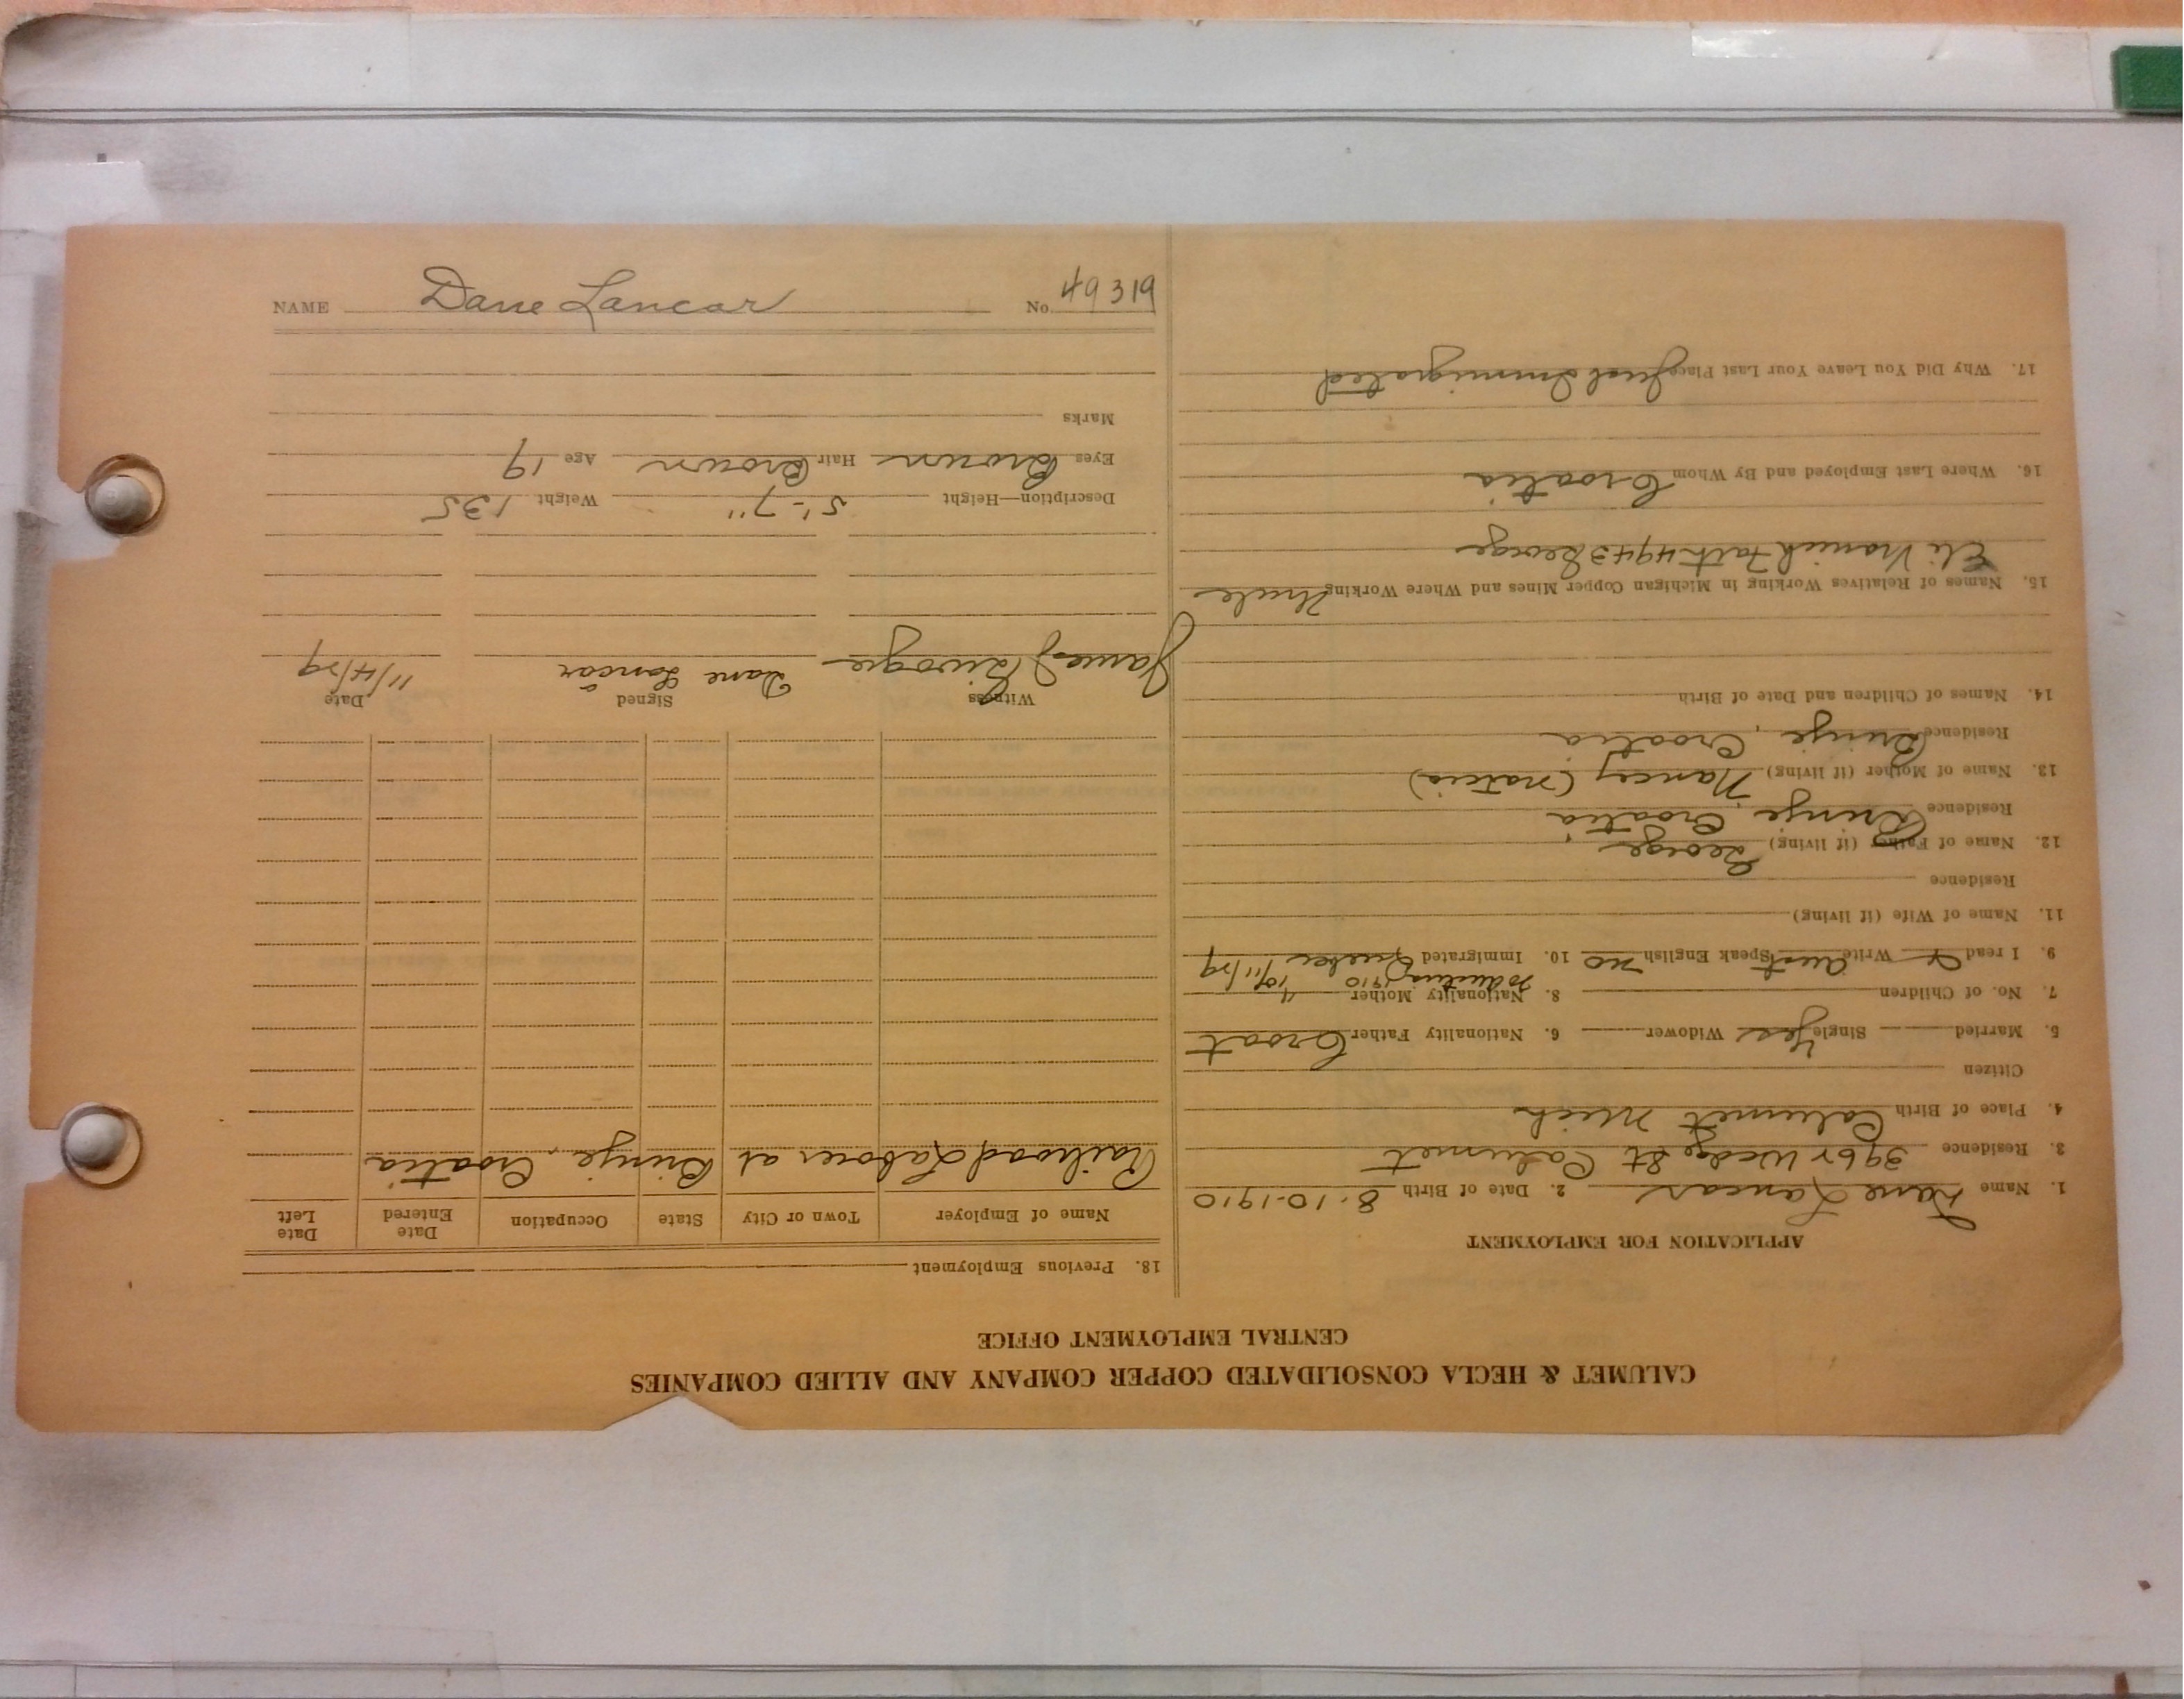 NAME Dane Lancar No. 49319
CALUMET & HECLA CONSOLIDATED COPPER COMPANY AND ALLIED COMPANIES
CENTRAL EMPLOYMENT OFFICE
APPLICATION FOR EMPLOYMENT
1. Name Dane Lancar 2. Date of Birth 8-10-1910
3. Residence Wedge St Calumet
4. Place of Birth Calumet Mich
Citizen
5. Married Single Yes Widower 6. Nationality Father Croat
7. No. of Children 8. Nationality Mother
to Austria 1910 10/11/29
9. I read Write Aust Speak English no 10. Immigrated Quebec
11. Name of Wife (if living)
Residence
12. Name of Father (if living) George
Residence Brinje, Croatia
13. Name of Mother (if living) Nancy
Residence Brinje, Croatia
14. Names of Children and Date of Birth
15. Names of Relatives Working in Michigan Copper Mines and Where Working Uncle
Eli 4943 George
16. Where Last Employed and By Whom Croatia
17. Why Did You Leave Your Last Place Just Immigrated
18. Previous Employment
Name of Employer Town or City State Occupation Date Entered Date Left
Railroad Laborer at Brinje, Croatia
Witness Signed Date
James Dane Lančar 11/4/29
Description—Height 5'-7" Weight 135
Eyes Brown Hair Brown Age 19
Marks